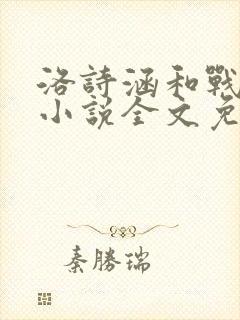 洛詩涵和戰
小說全文免
秦勝瑞